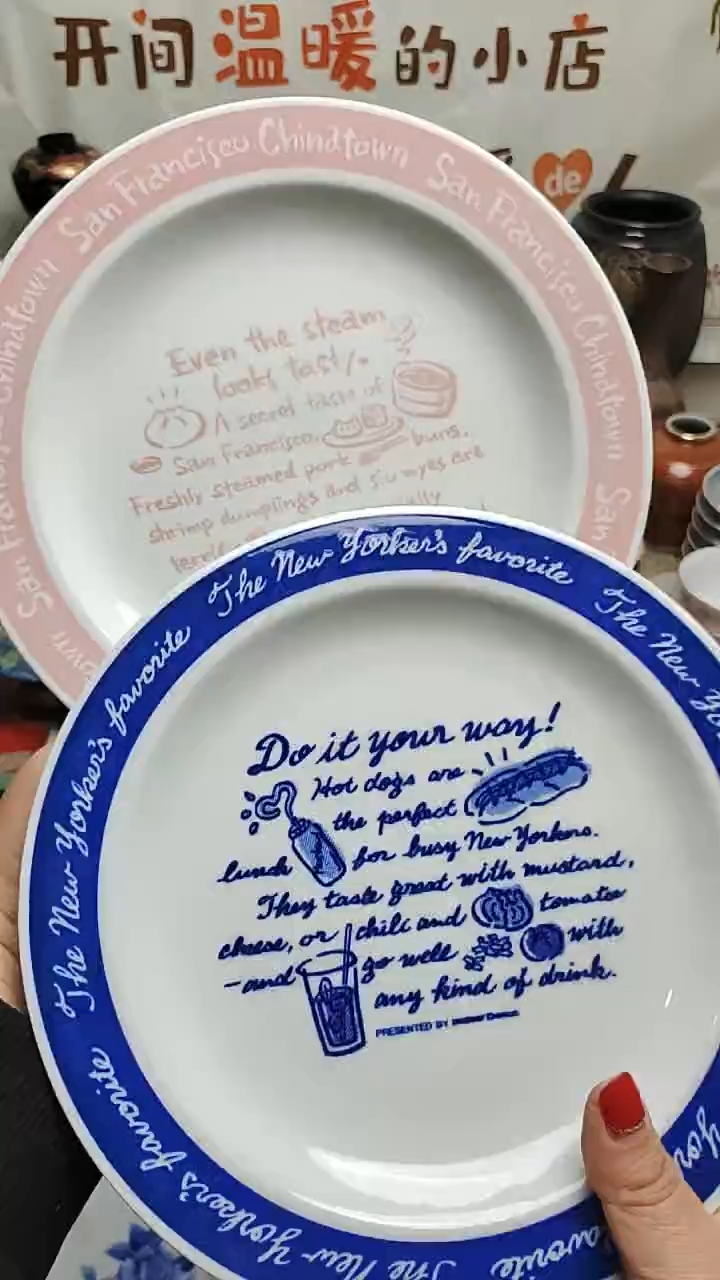 开间温暖的小店
de
San Francisco Chinatown San Francisco Chinatown San
Even the steam
looks tasty.
A secret taste of
San Francisco,
buns.
Freshly steamed pork
shrimp dumplings and siu myes are
The New Yorker's favorite The New Yorker's favorite The New Yorker's favorite
Do it your way!
Hot dogs are
the perfect
lunch for busy New Yorkers.
They taste great with mustard,
cheese, or chili and tomatoe
-and go well with
any kind of drink.
PRESENTED BY